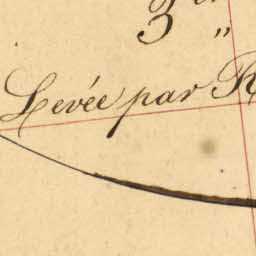 3 „
Levée par R